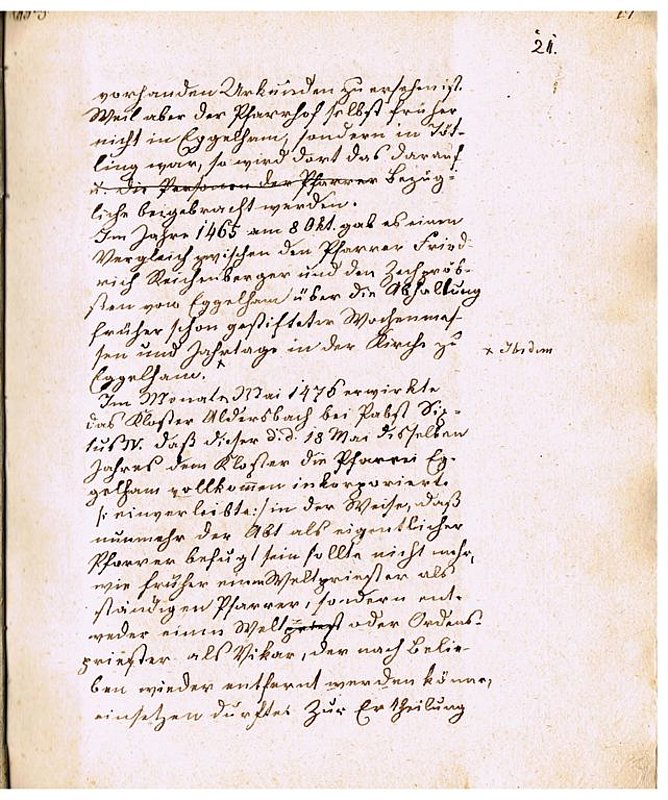 21.
vorhanden Urkunden zu ersehen ist.
Weil aber der Pfarrhof selbst früher
nicht in Eggelham, sondern in Tött-
ling war, so wird dort das darauf
u. die Personen der Pfarrer Bezüg-
liche beigebracht werden.
Im Jahre 1465 am 8 Okt. gab es einen
Vergleich zwischen dem Pfarrer Fried-
rich Reichenberger und den Zechpröb-
sten von Eggelham über die Abhaltung
früher schon gestifteter Wochenmes-
sen und Jahrtage in der Kirche zu
Eggelham. x
x Ibidem
Im Monate Mai 1476 erwirkte
das Kloster Aldersbach bei Pabst Six-
tus IV. daß dieser d.d. 18 Mai desselben
Jahres dem Kloster die Pfarrei Eg-
gelham vollkommen inkorporierte
/: einverleibte :/ in der Weise, daß
nunmehr der Abt als eigentlicher
Pfarrer befugt sein sollte nicht mehr,
wie früher einen Weltpriester als
ständigen Pfarrer, sondern ent-
weder einen Welt oder Ordens-
priester als Vikar, der nach Belie-
ben wieder entfernt werden könne,
einsetzen dürfte. Zur Ertheilung